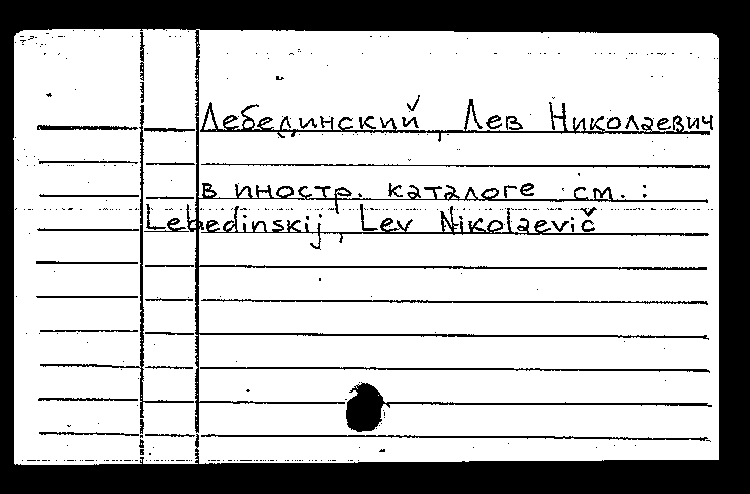 Лебединский, Лев Николаевич
в иностр. каталоге см.:
Lebedinskij, Lev Nikolaevič